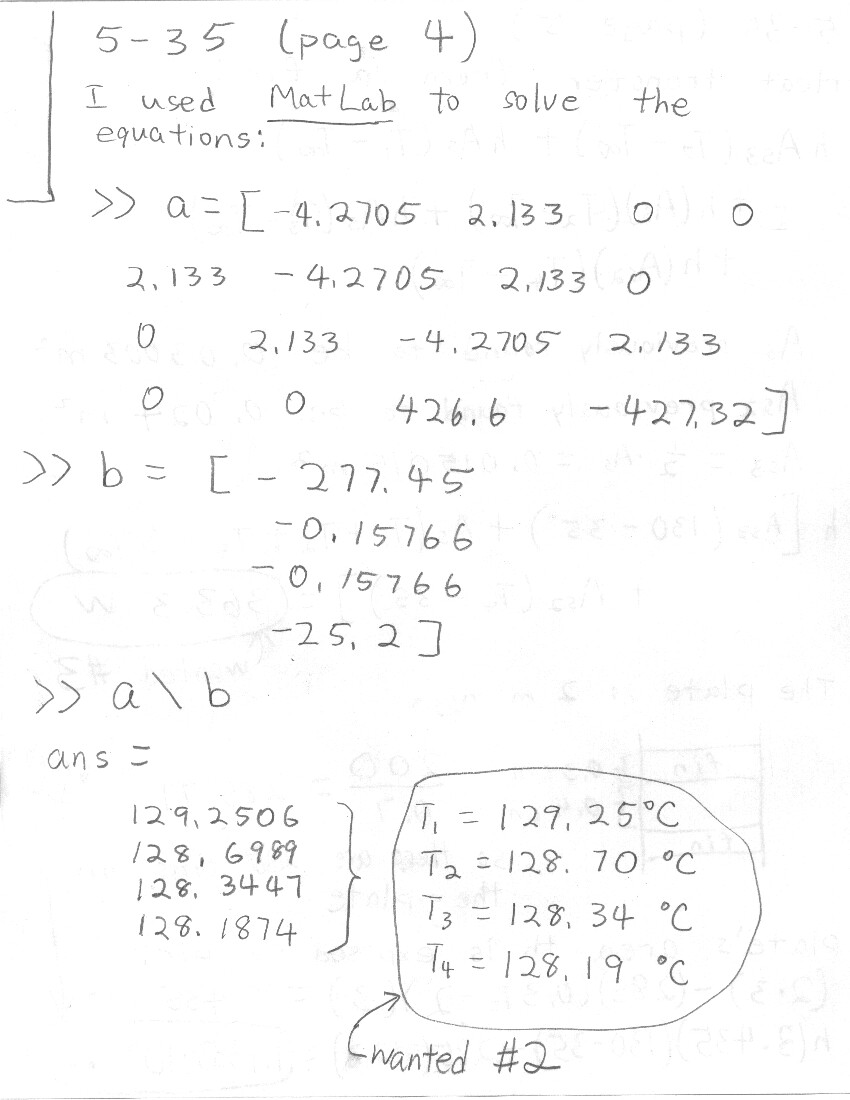 5-35 (page 4)
I used MatLab to solve the
equations:
>> a = [ -4.2705 2.133 0 0
2.133 -4.2705 2.133 0
0 2.133 -4.2705 2.133
0 0 426.6 -427.32 ]
>> b = [ -277.45
-0.15766
-0.15766
-25.2 ]
>> a \ b
ans =
129.2506
128.6989
128.3447
128.1874
T1 = 129.25°C
T2 = 128.70 °C
T3 = 128.34 °C
T4 = 128.19 °C
wanted #2